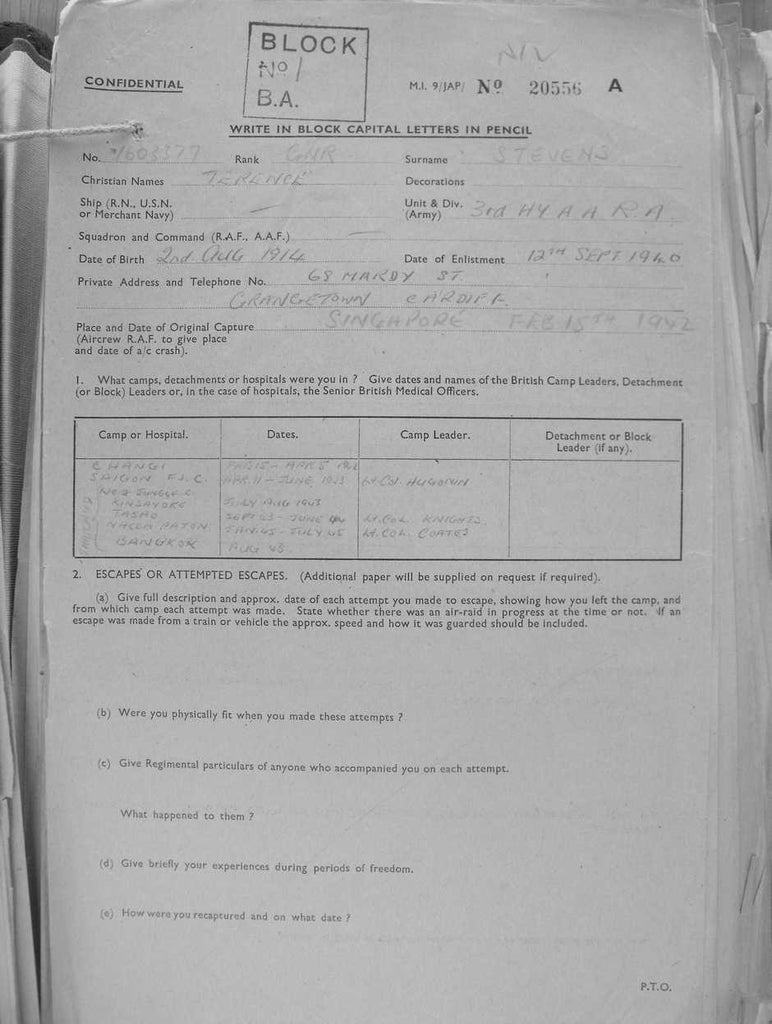 BLOCK
No 1
B.A.
CONFIDENTIAL
M.I. 9/JAP/ No 20556 A
WRITE IN BLOCK CAPITAL LETTERS IN PENCIL
No. 1603377 Rank GNR Surname STEVENS
Christian Names TERENCE Decorations
Ship (R.N., U.S.N. or Merchant Navy) — Unit & Div. (Army) 3rd HY A A R.A.
Squadron and Command (R.A.F., A.A.F.) —
Date of Birth 2nd AUG 1914 Date of Enlistment 12TH SEPT 1940
Private Address and Telephone No. 68 MARDY ST.
GRANGETOWN CARDIFF
Place and Date of Original Capture SINGAPORE FEB 15TH 1942
(Aircrew R.A.F. to give place
and date of a/c crash).
1. What camps, detachments or hospitals were you in ? Give dates and names of the British Camp Leaders, Detachment
(or Block) Leaders or, in the case of hospitals, the Senior British Medical Officers.
Camp or Hospital. Dates. Camp Leader. Detachment or Block
Leader (if any).
CHANGI FEB 15 - APR 5 1942
SAIGON F.I.C. APR 11 - JUNE 1943 Lt. Col. HUGONIN
No 2 JUNGLE C.
KINSAYOKE JULY AUG 1943
TASAO SEPT 43 - JUNE 44 Lt. COL. KNIGHTS
NAKOM PATON JAN. 45 - JULY 45 Lt. COL. COATES
BANGKOK AUG 45
2. ESCAPES OR ATTEMPTED ESCAPES. (Additional paper will be supplied on request if required).
(a) Give full description and approx. date of each attempt you made to escape, showing how you left the camp, and
from which camp each attempt was made. State whether there was an air-raid in progress at the time or not. If an
escape was made from a train or vehicle the approx. speed and how it was guarded should be included.
(b) Were you physically fit when you made these attempts ?
(c) Give Regimental particulars of anyone who accompanied you on each attempt.
What happened to them ?
(d) Give briefly your experiences during periods of freedom.
(e) How were you recaptured and on what date ?
P.T.O.